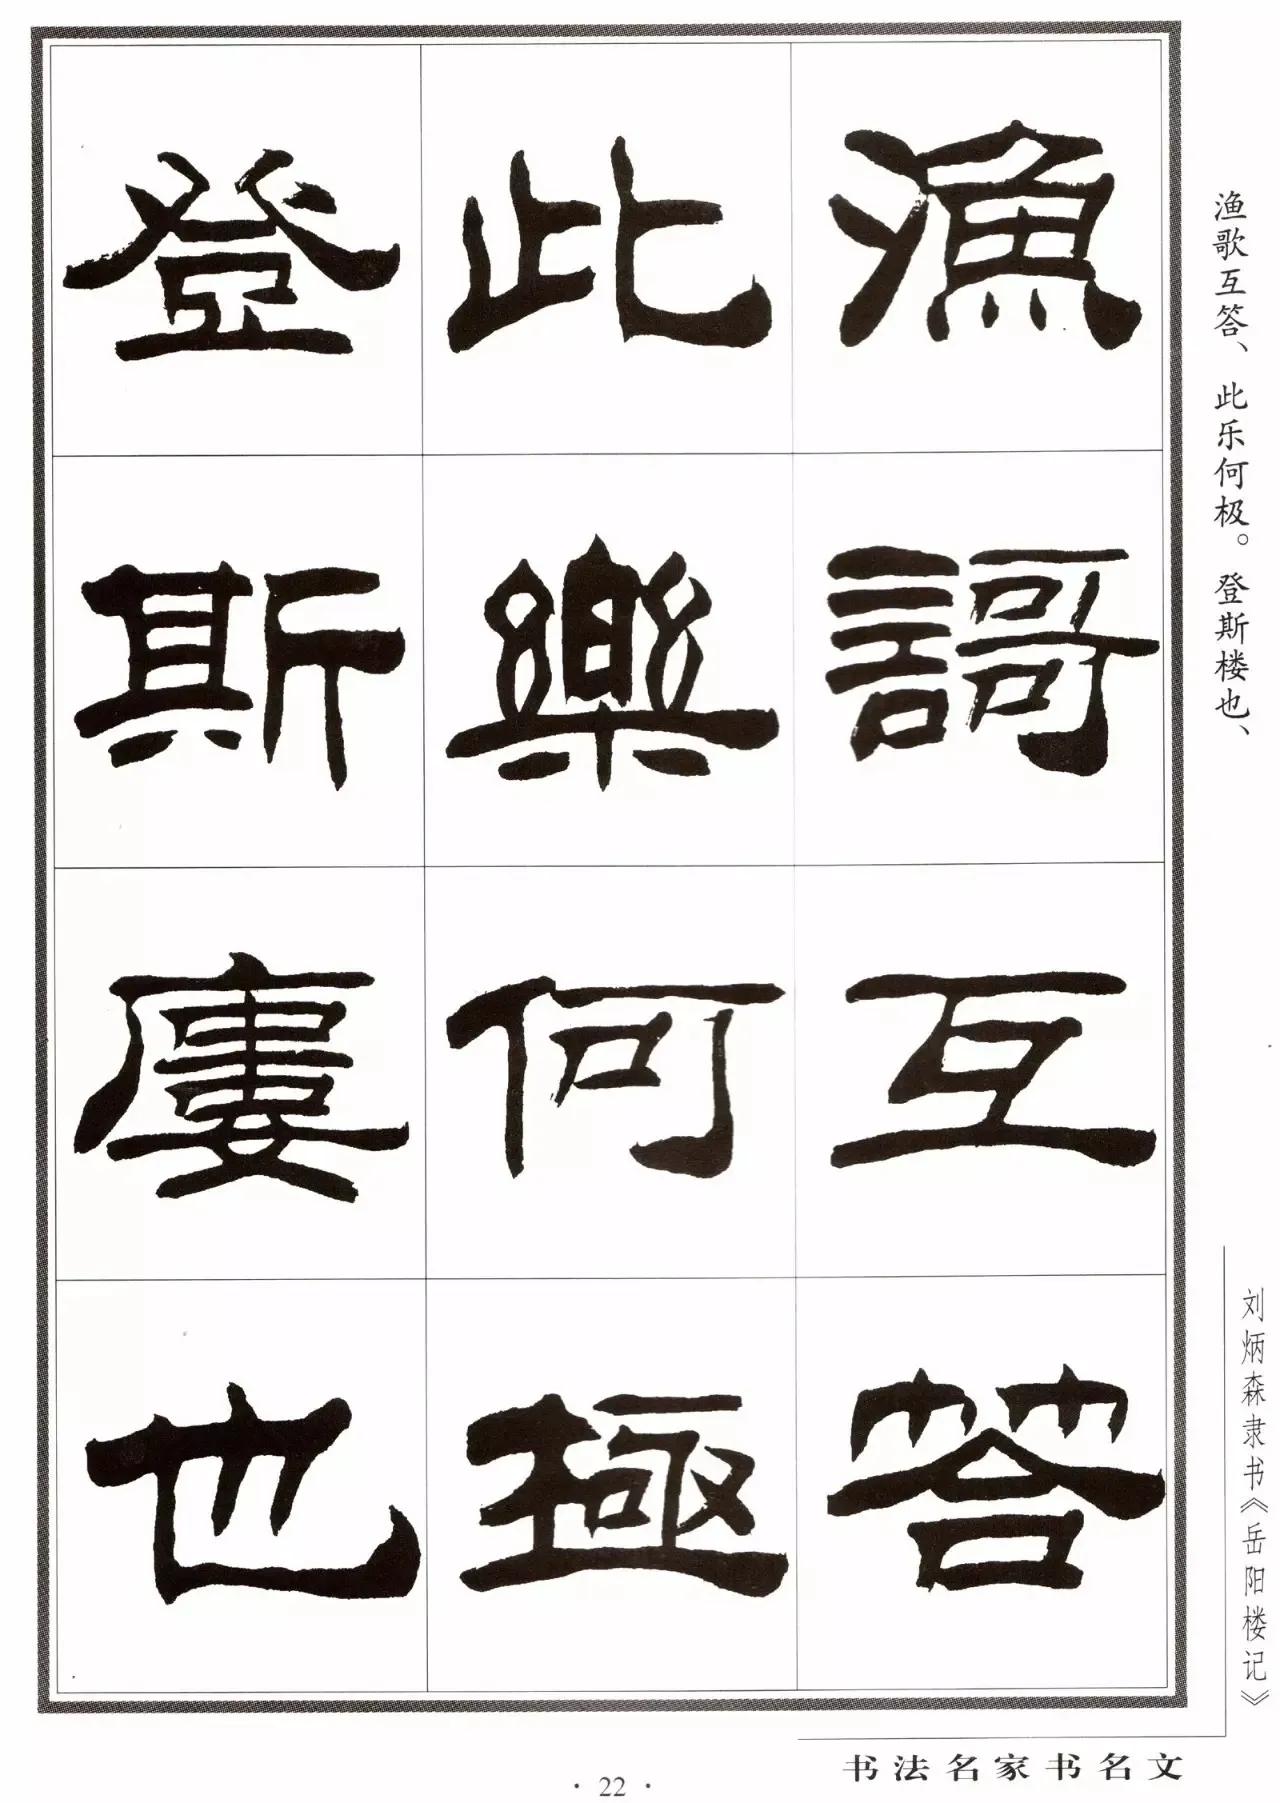 漁謌互答
此樂何極
登斯廔也
渔歌互答、此乐何极。登斯楼也、
刘炳森隶书《岳阳楼记》
书法名家书名文
·22·